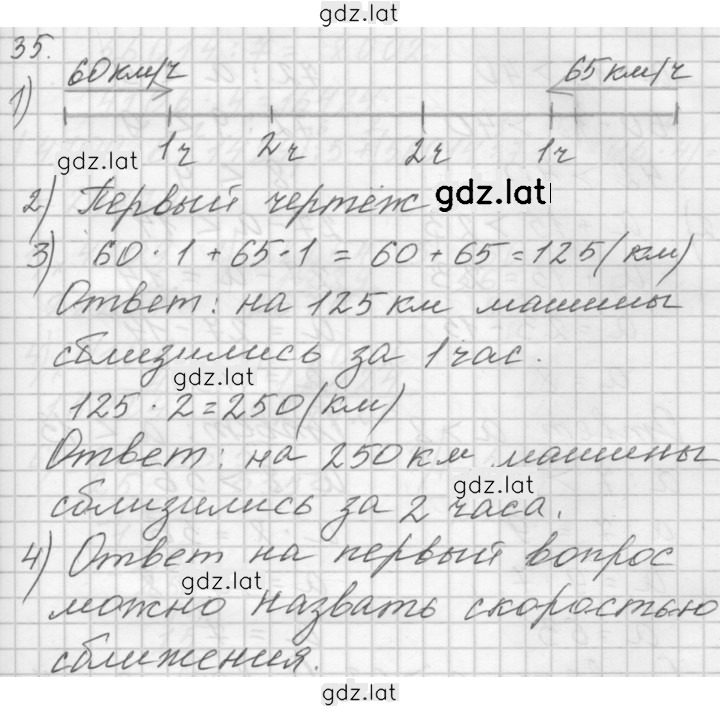 gdz.lat
35.
60 км/ч 65 км/ч
1)
1ч 2ч 2ч 1ч
gdz.lat
2) Первый чертёж gdz.lat
3) 60 · 1 + 65 · 1 = 60 + 65 = 125 (км)
Ответ: на 125 км машины
сблизились за 1 час.
gdz.lat
125 · 2 = 250 (км)
Ответ: на 250 км машины
gdz.lat
сблизились за 2 часа.
4) Ответ на первый вопрос
gdz.lat
можно назвать скоростью
сближения.
gdz.lat